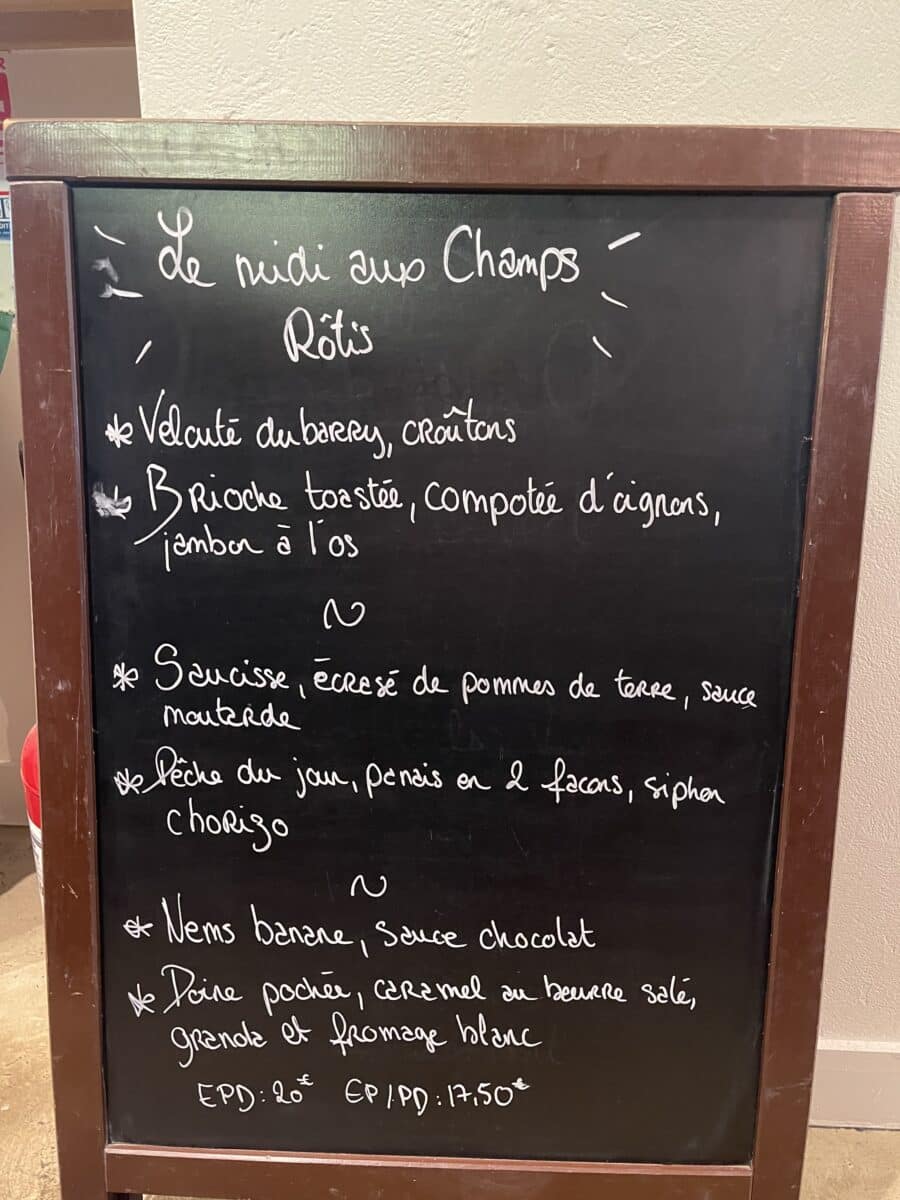 Le midi aux Champs
Rôtis
* Velouté dubarry, croûtons
* Brioche toastée, compotée d'oignons,
jambon à l'os
~
* Saucisse, écrasé de pommes de terre, sauce
moutarde
* Pêche du jour, panais en 2 facons, siphon
chorizo
~
* Nems banane, sauce chocolat
* Poire pochée, caramel au beurre salé,
granola et fromage blanc
EPD : 20€ EP/PD : 17,50€